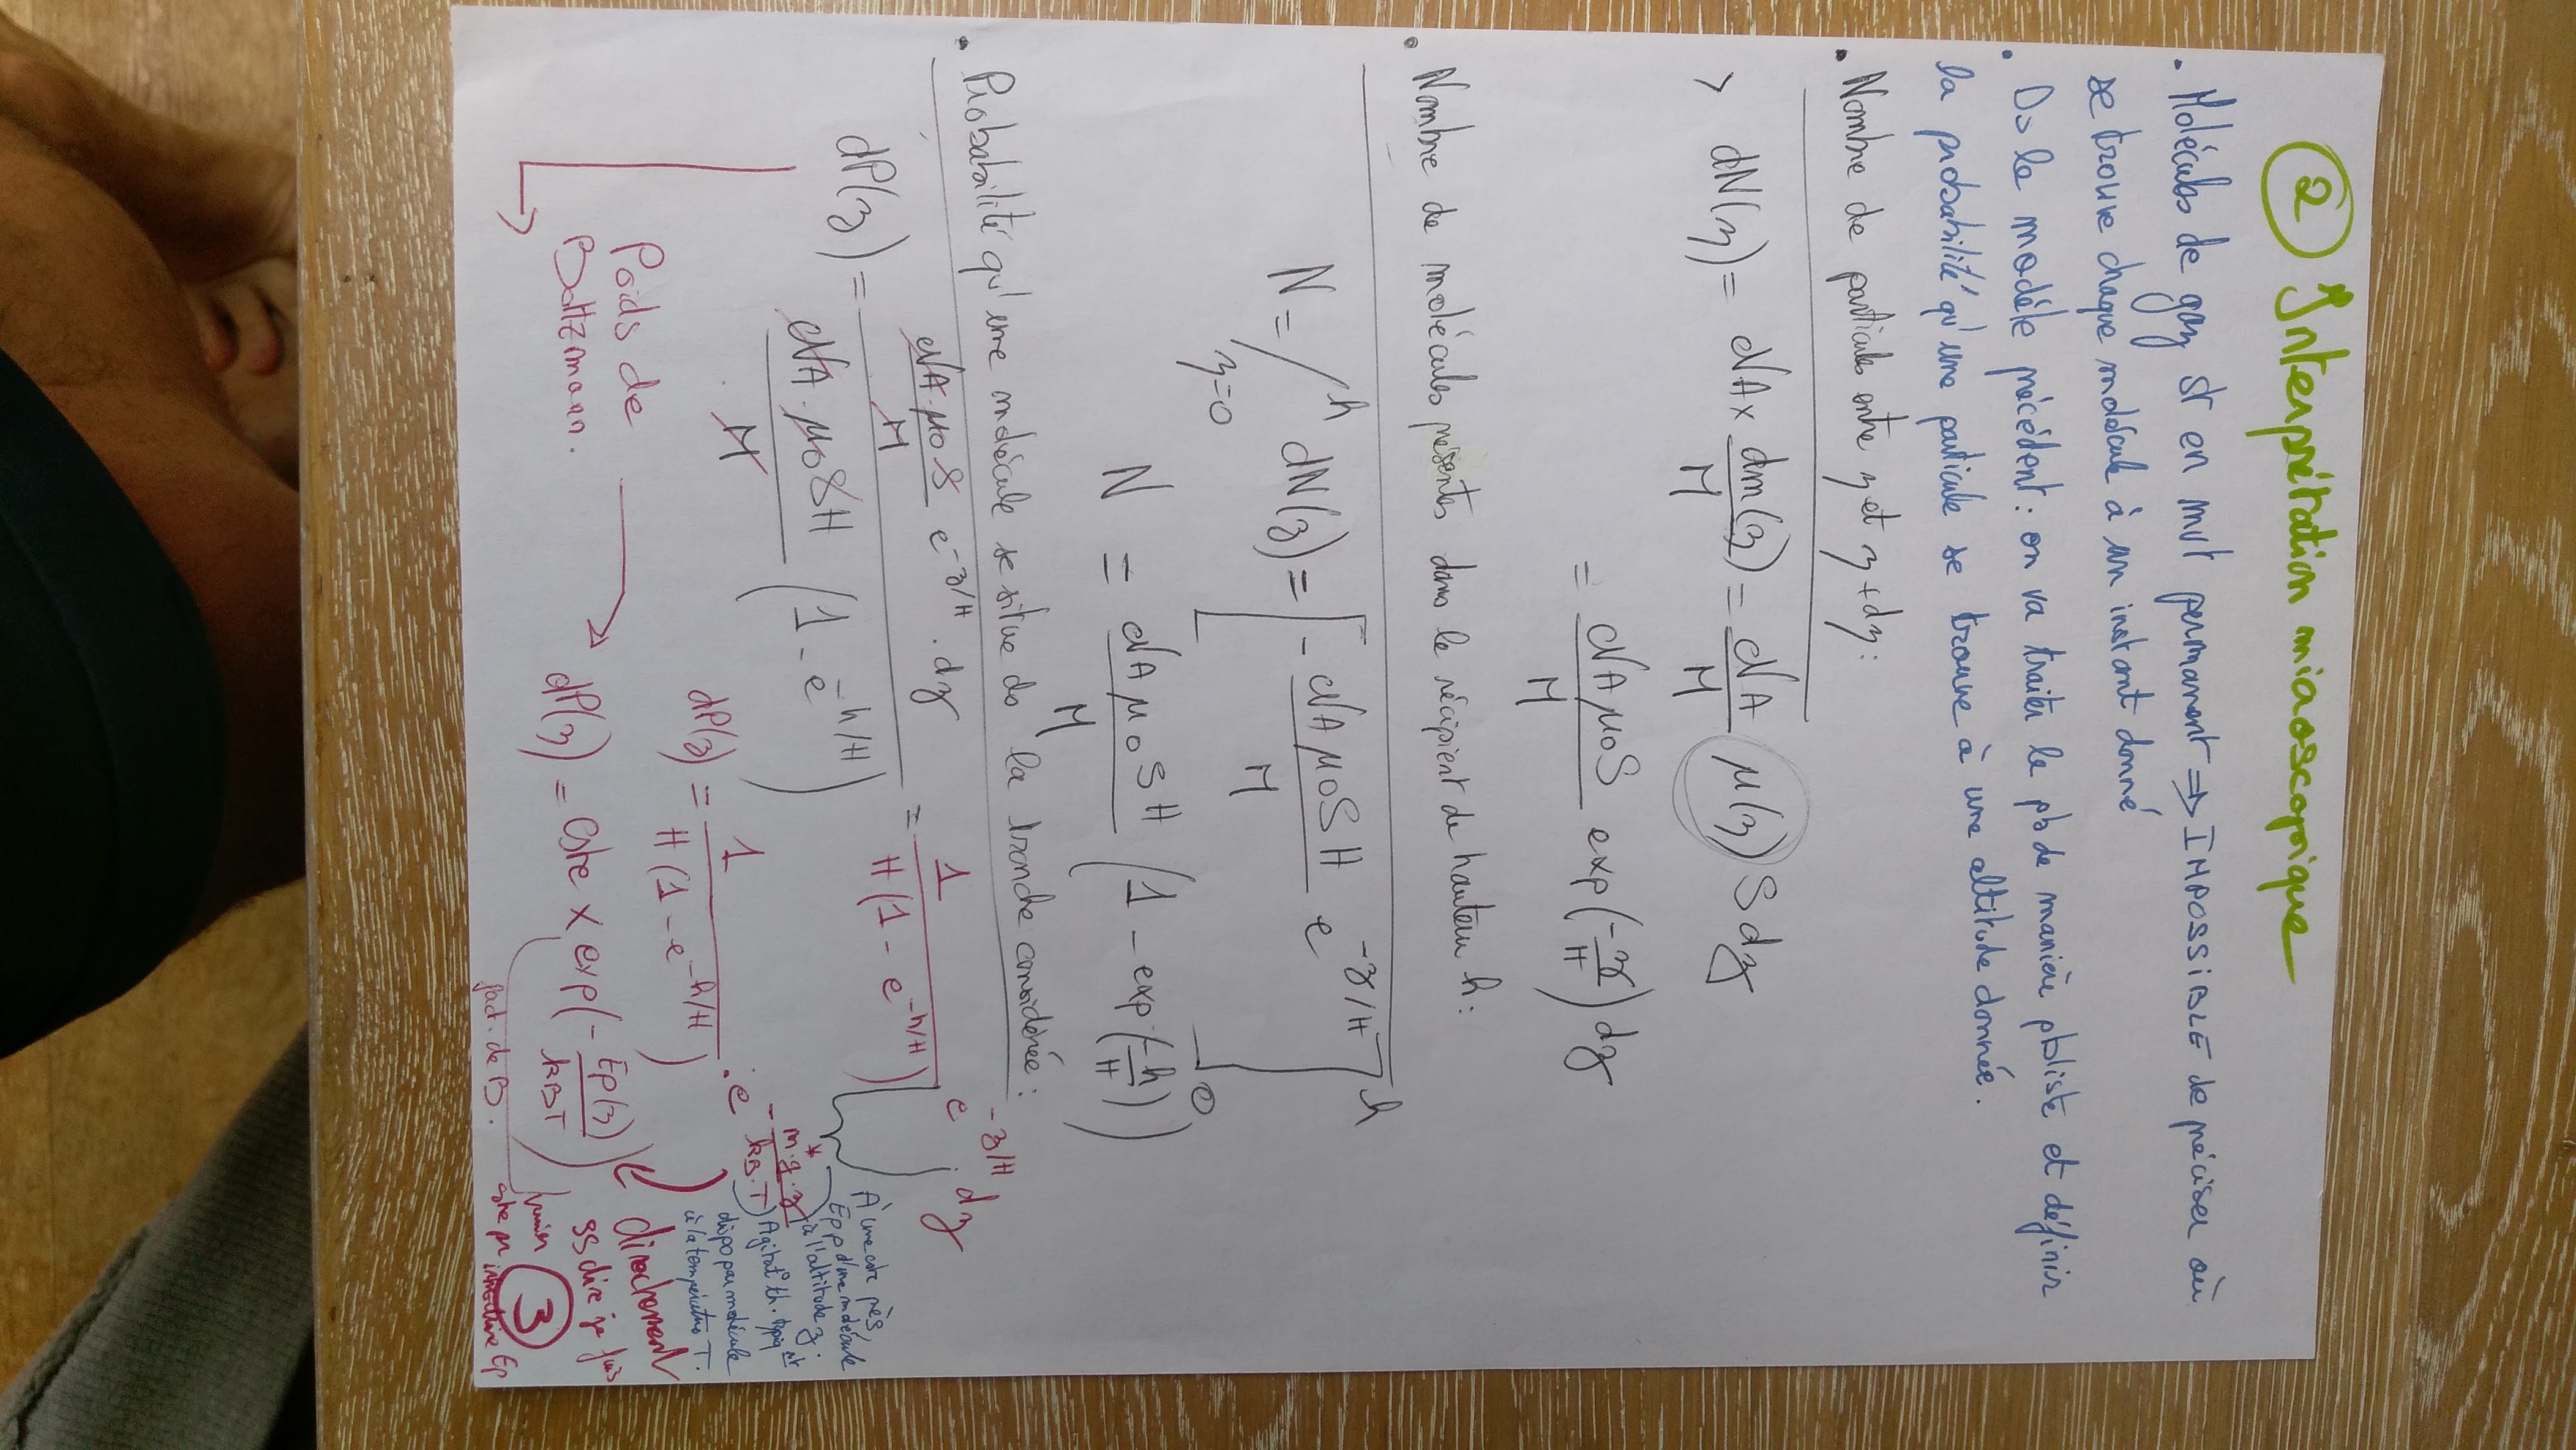 ② Interprétation microscopique
• Molécules de gaz st en mvt permanent ⇒ IMPOSSIBLE de préciser où
se trouve chaque molécule à un instant donné
• Ds le modèle précédent : on va traiter le pb de manière pbliste et définir
la probabilité qu'une particule se trouve à une altitude donnée.
• Nombre de particules entre z et z+dz :
> dN(z) = NA × dm(z)/M = NA/M μ(z) S dz
= NA μ0 S/M exp(-z/H) dz
• Nombre de molécules présentes dans le récipient de hauteur h :
N = ∫_{z=0}^{h} dN(z) = [- NA μ0 S H/M e^{-z/H}]_0^h
N = NA μ0 S H/M (1 - exp(-h/H))
• Probabilité qu'une molécule se situe ds la tranche considérée :
dP(z) = (NA·μ0 S/M e^{-z/H} · dz)/(NA·μ0 S H/M (1 - e^{-h/H})) = 1/(H(1 - e^{-h/H})) e^{-z/H} · dz
dP(z) = 1/(H(1 - e^{-h/H})) · e^{-m*·g·z/(kB·T)}
À une cste près,
Epp d'une molécule
à l'altitude z.
Agitat° th. typiq
dispo par molécule
à la température T.
Poids de
Boltzmann.
dP(z) = Cste × exp(-Ep(z)/(kBT))
fact. de B.
directement
ss dire je fais
③
cste pr introduire Ep